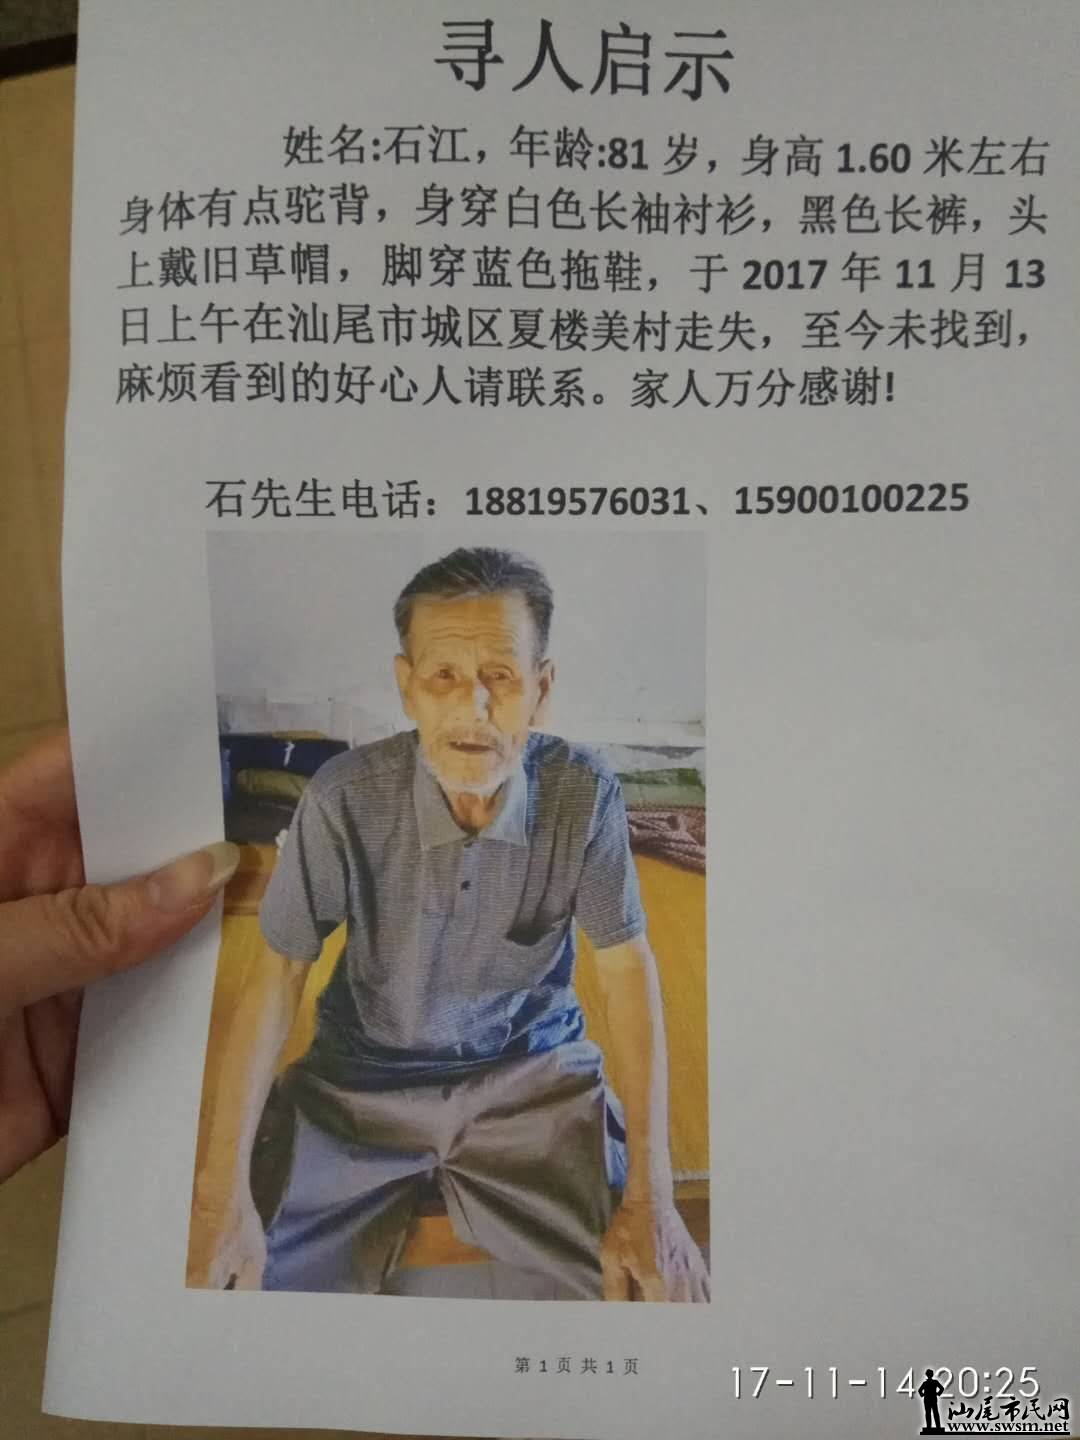 寻人启示
姓名:石江，年龄:81 岁，身高 1.60 米左右
身体有点驼背，身穿白色长袖衬衫，黑色长裤，头
上戴旧草帽，脚穿蓝色拖鞋，于 2017 年 11 月 13
日上午在汕尾市城区夏楼美村走失，至今未找到，
麻烦看到的好心人请联系。家人万分感谢!
石先生电话：18819576031、15900100225
第 1 页 共 1 页
17-11-14 20:25
汕尾市民网
www.swsm.net